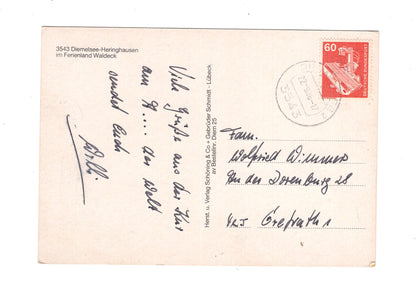 3543 Diemelsee-Heringhausen
im Ferienland Waldeck
Viele Grüße aus der Kur
am A.... der Welt
sendet Euch
Willi
Herst. u. Verlag Schöning & Co + Gebrüder Schmidt · Lübeck
av Bestellnr. Diem 25
3543
60
DEUTSCHE BUNDESPOST
Fam.
Wolfried Wimmer
An der Dorenburg 28
Grefrath 1